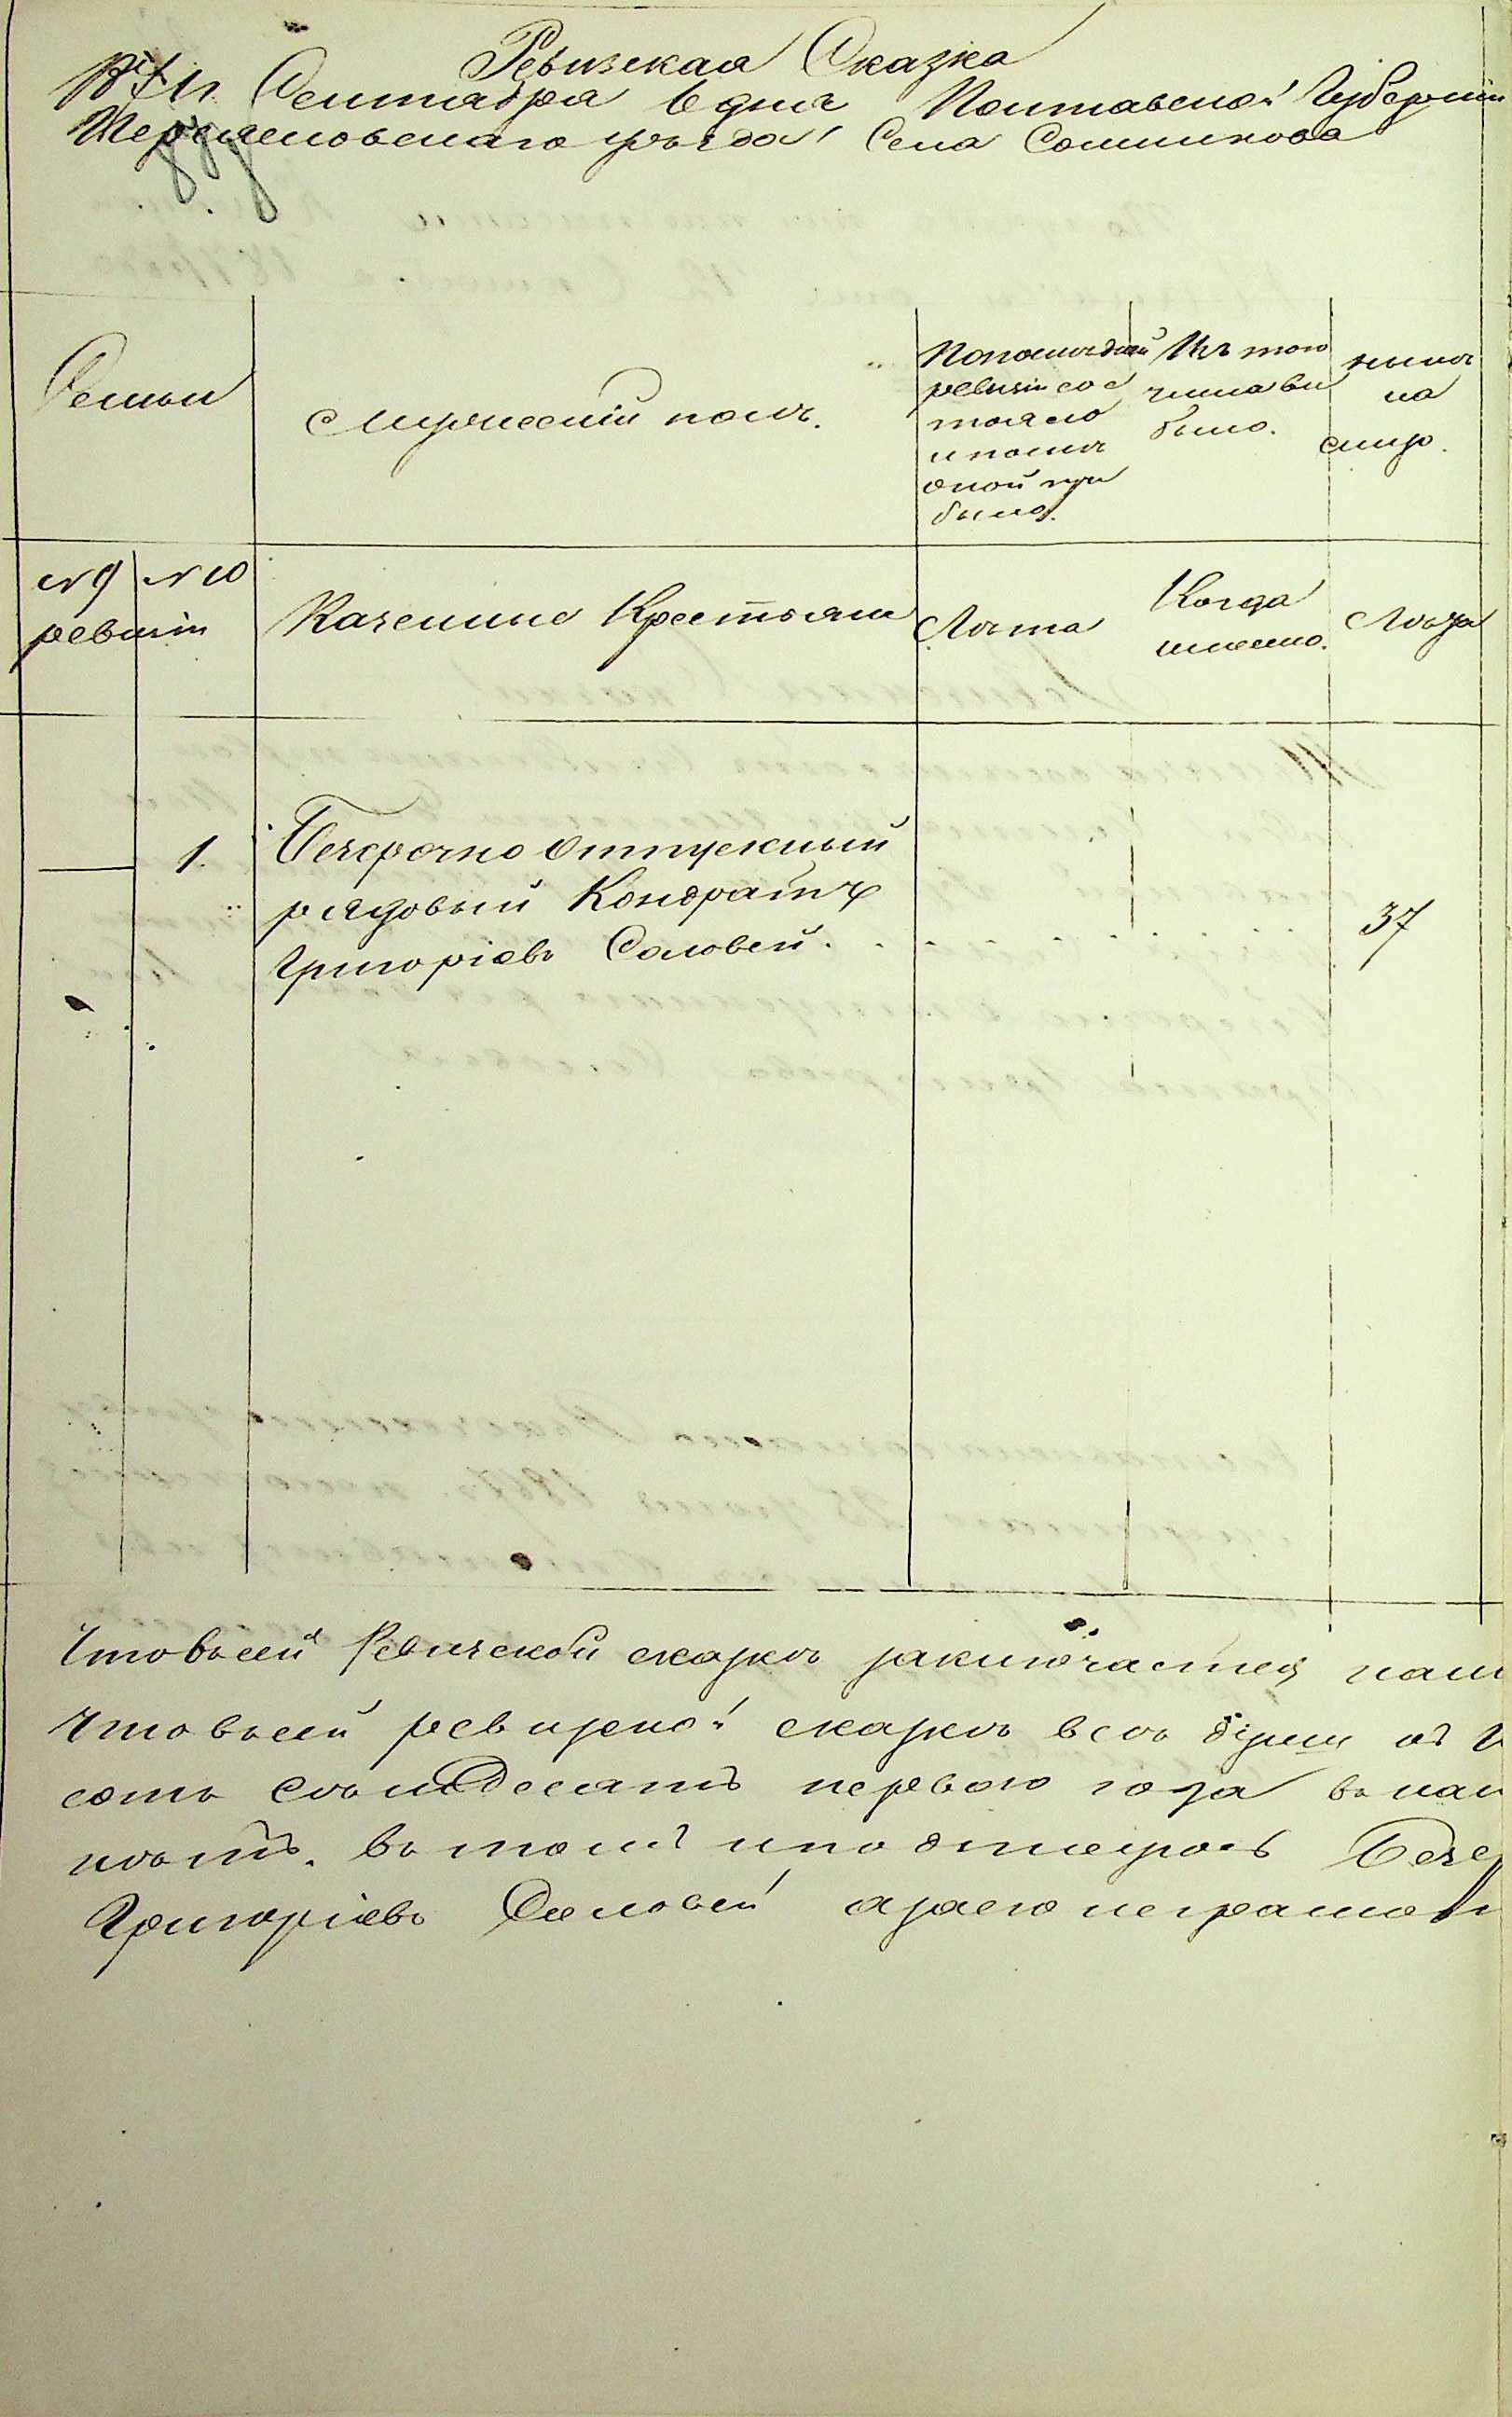 Ревизская Сказка
1871 г. Сентября 6 дня Полтавской Губерніи
Переяславскаго уѣзда Села Сошникова
Семьи
Мужескій полъ.
По послѣдней
ревизіи сос
тояло
и послѣ
оной при
было.
Изъ того
числа вы
было.
нынѣ
на
лицо.
№ 9 № 10
ревизіи
Казенные Крестьяне
Лѣта
Когда
именно.
Лѣта
1. Безсрочно отпускный
рядовый Кондратъ
Григоріевъ Соловей. 37
Что въ сей Ревизской сказкѣ заключается
Что в сей ревизской сказкѣ всѣ
сотъ семьдесятъ перваго года
въ томъ и подтверъ
Григоріевъ Соловей а за его неграмотн